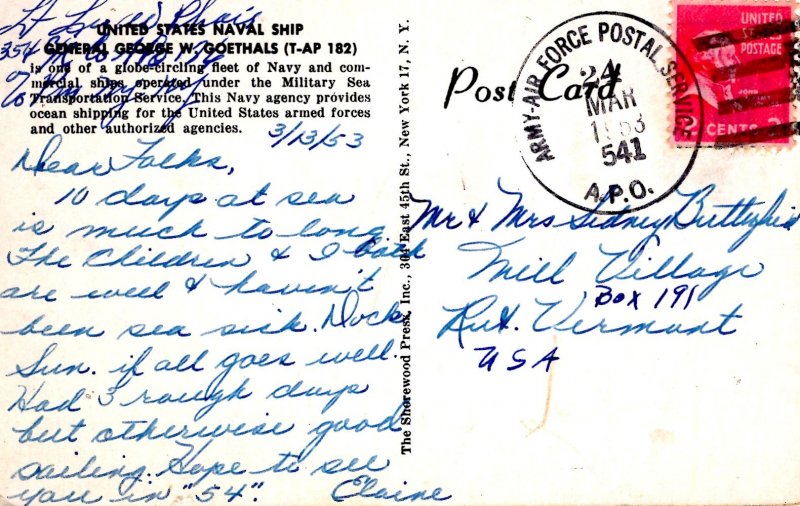 UNITED STATES NAVAL SHIP
GENERAL GEORGE W. GOETHALS (T-AP 182)
is one of a globe-circling fleet of Navy and com-
mercial ships operated under the Military Sea
Transportation Service. This Navy agency provides
ocean shipping for the United States armed forces
and other authorized agencies.
Lt
354
3/13/53
Dear Folks,
10 days at sea
is much to long
The Children & I both
are well & haven't
been sea sick. Dock
Sun. if all goes well.
Had 3 rough days
but otherwise good
sailing. Hope to see
you in "54".
Elaine
The Shorewood Press, Inc., 304 East 45th St., New York 17, N. Y.
Post Card
ARMY-AIR FORCE POSTAL SERVICE
24
MAR
1953
541
A.P.O.
UNITED
STATES
POSTAGE
JOHN
2 CENTS 2
Mr & Mrs Sidney
Mill Village
Box 191
Rut. Vermont
USA